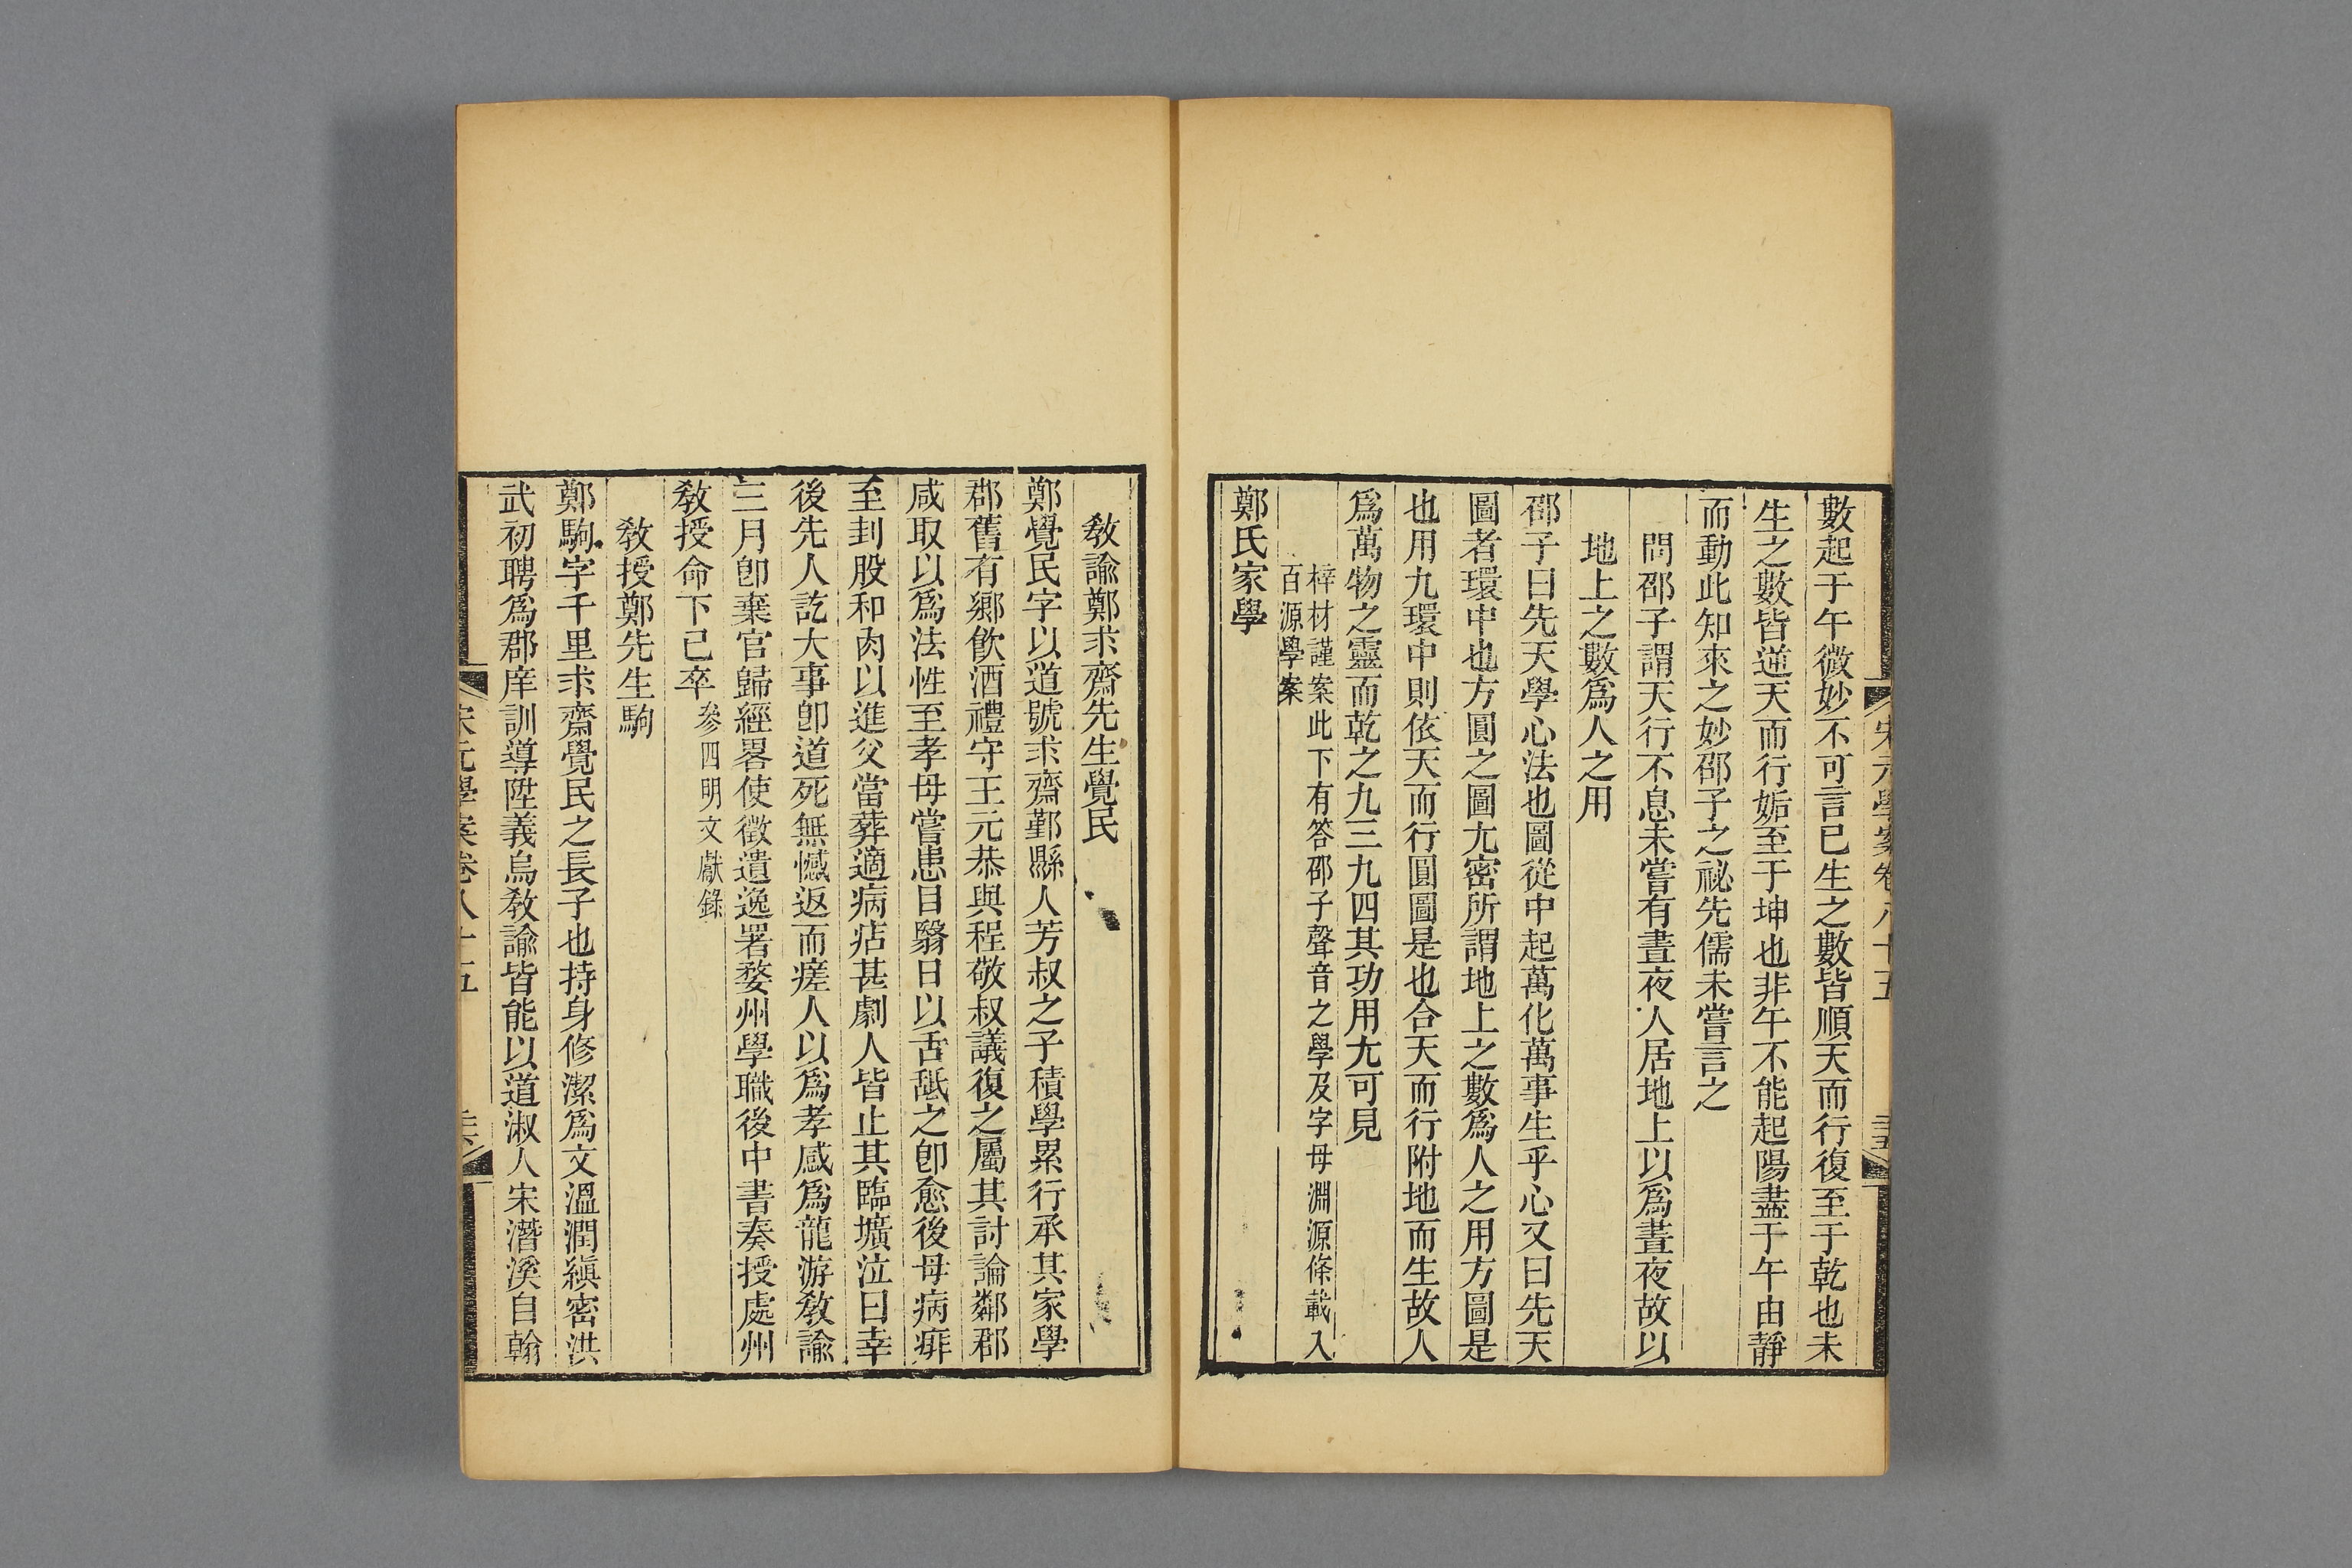 宋元學案卷八十五
數起于午微妙不可言已生之數皆順天而行復至于乾也未
生之數皆逆天而行姤至于坤也非午不能起陽盡于午由靜
而動此知來之妙邵子之祕先儒未嘗言之
問邵子謂天行不息未嘗有晝夜人居地上以爲晝夜故以
地上之數爲人之用
邵子曰先天學心法也圖從中起萬化萬事生乎心又曰先天
圖者環中也方圓之圖尢密所謂地上之數爲人之用方圖是
也用九環中則依天而行圓圖是也合天而行附地而生故人
爲萬物之靈而乾之九三九四其功用尢可見
梓材謹案此下有答邵子聲音之學及字母淵源條載入
百源學案
鄭氏家學
敎諭鄭求齋先生覺民
鄭覺民字以道號求齋鄞縣人芳叔之子積學累行承其家學
郡舊有鄉飮酒禮守王元恭與程敬叔議復之屬其討論鄰郡
咸取以爲法性至孝母嘗患目翳日以舌舐之卽愈後母病痱
至刲股和肉以進父當葬適病痁甚劇人皆止其臨壙泣曰幸
後先人訖大事卽道死無憾返而瘥人以爲孝感爲龍游敎諭
三月卽棄官歸經畧使徵遺逸署婺州學職後中書奏授處州
敎授命下已卒參四明文獻錄
敎授鄭先生駒
鄭駒字千里求齋覺民之長子也持身修潔爲文溫潤縝密洪
武初聘爲郡庠訓導陞義烏敎諭皆能以道淑人宋潛溪自翰
宋元學案卷八十五